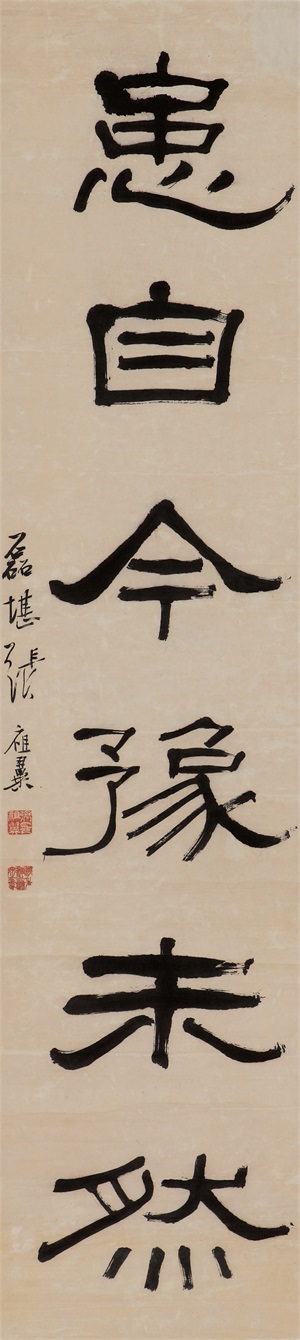 患自今豫未然
磊堪張祖翼